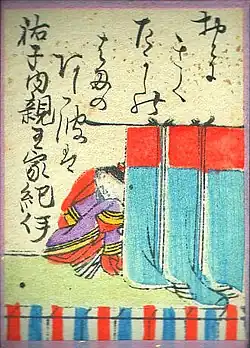 おとに
きく
たかしの
はまの
あた波は
祐子内親王家紀伊